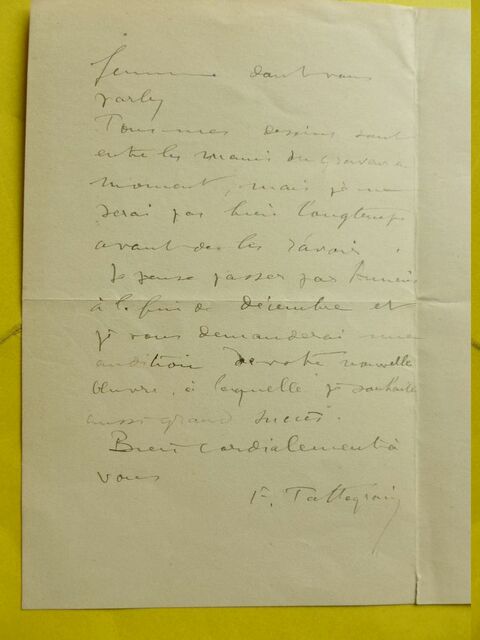 femme dont vous
parlez
Tous mes dessins sont
entre les mains du graveur en ce
moment, mais je ne
serai pas bien longtemps
avant de les ravoir.
Je pense passer par Amiens
à la fin de décembre et
je vous demanderai une
audition de votre nouvelle
œuvre, à laquelle je souhaite
aussi grand succès.
Bien cordialement à
vous
F. Tattegrain